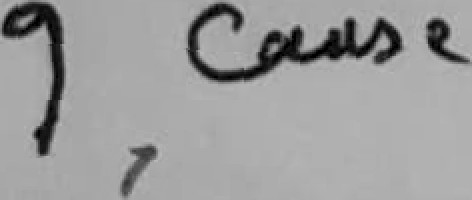 9, Cause